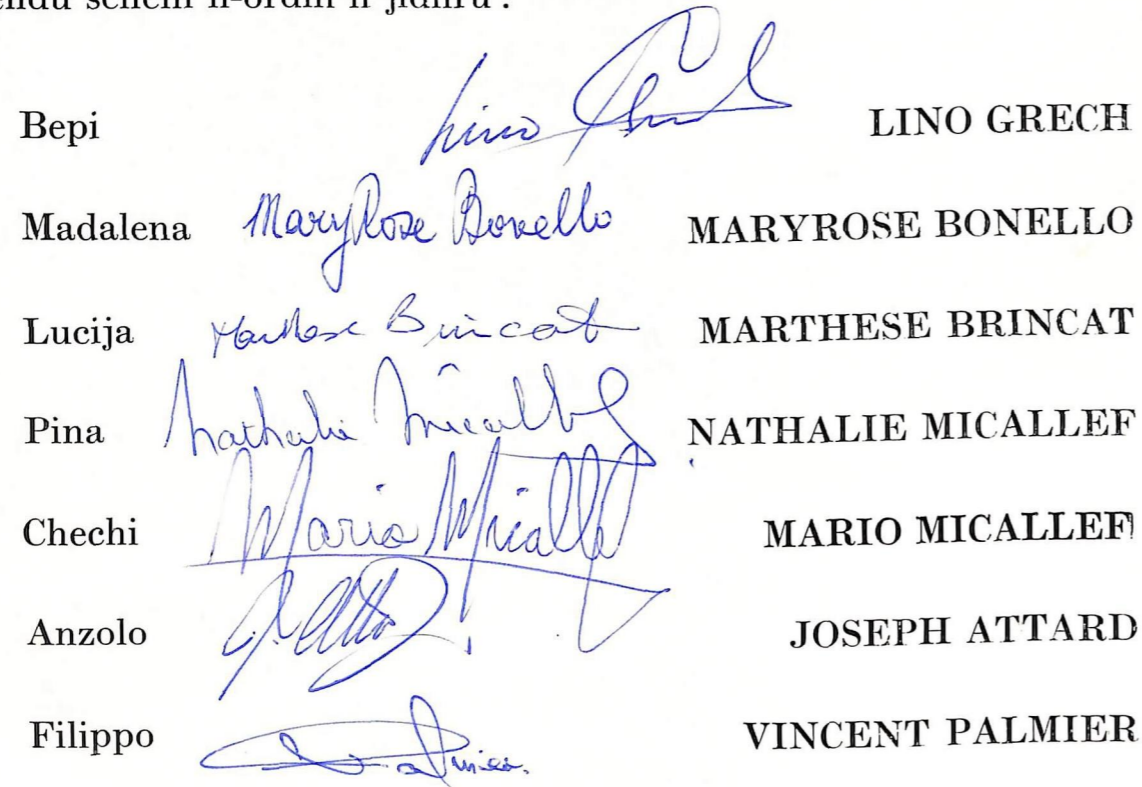 skond l-ordni li jidhru:
Bepi Lino Grech LINO GRECH
Madalena MaryRose Bonello MARYROSE BONELLO
Lucija Marthese Brincat MARTHESE BRINCAT
Pina Nathalie Micallef NATHALIE MICALLEF
Chechi Mario Micallef MARIO MICALLEF
Anzolo J. Attard JOSEPH ATTARD
Filippo VINCENT PALMIER